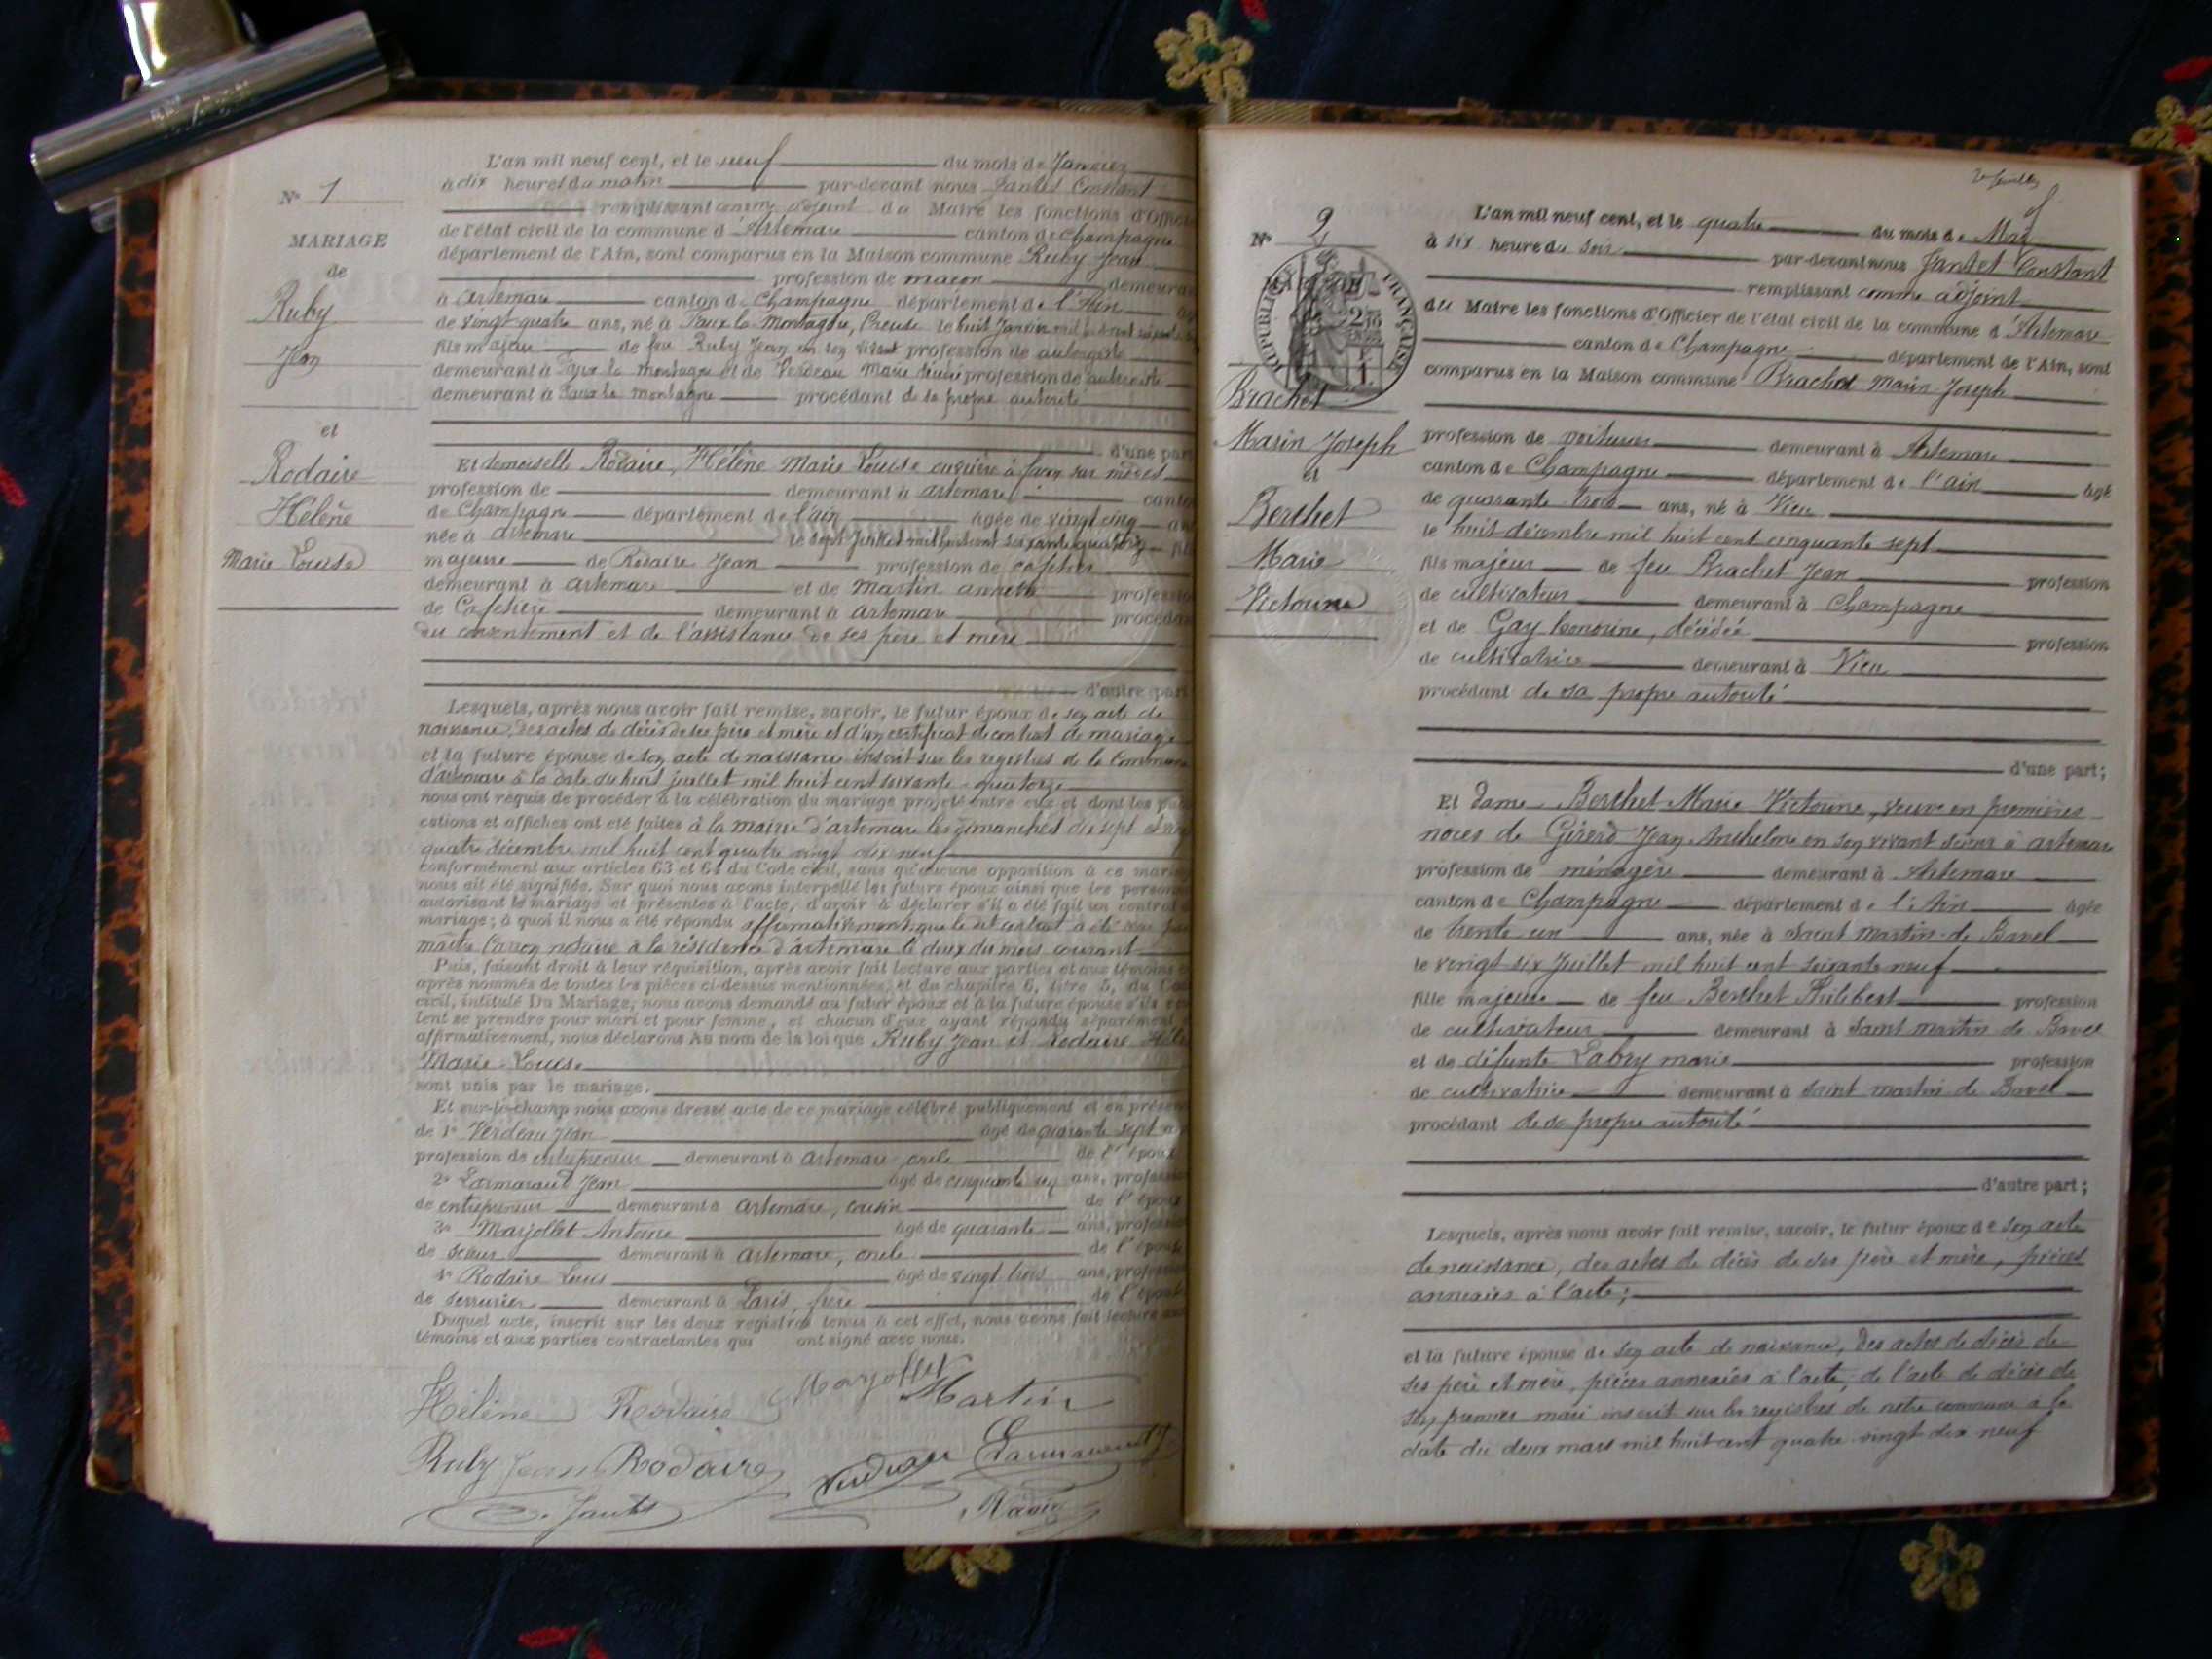 L'an mil neuf cent, et le neuf du mois de Janvier
à dix heures du matin par-devant nous Jantet Constant
remplissant comme adjoint du Maire les fonctions d'Officier
de l'état civil de la commune d'Artemare canton de Champagne
département de l'Ain, sont comparus en la Maison commune Ruby Jean
profession de maçon demeurant
à Artemare canton de Champagne département de l'Ain
de vingt-quatre ans, né à Faux la Montagne, Creuse le huit Janvier mil huit cent
fils majeur de feu Ruby Jean en son vivant profession de aubergiste
demeurant à Faux la Montagne et de Verdeau Marie profession de aubergiste
demeurant à Faux la Montagne procédant de sa propre autorité
d'une part
Nº 1
MARIAGE
de
Ruby
Jean
et
Rodaire
Hélène
Marie Louise
Et demoiselle Rodaire, Hélène Marie Louise ouvrière à façon sur métiers
profession de demeurant à Artemare canton
de Champagne département de l'ain âgée de vingt cinq ans
née à Artemare le sept juillet mil huit cent soixante quatorze fille
majeure de Rodaire Jean profession de cafetier
demeurant à Artemare et de Martin profession
de Cafetière demeurant à Artemare procédant
du consentement et de l'assistance de ses père et mère
d'autre part
Lesquels, après nous avoir fait remise, savoir, le futur époux de son acte de
naissance, des actes de décès de ses père et mère et d'un certificat de contrat de mariage
et la future épouse de son acte de naissance inscrit sur les registres de la Commune
d'Artemare à la date du huit juillet mil huit cent soixante-quatorze
nous ont requis de procéder à la célébration du mariage projeté entre eux et dont les
cations et affiches ont été faites à la mairie d'artemare les dimanches dix sept et
quatre décembre mil huit cent quatre vingt dix neuf
conformément aux articles 63 et 64 du Code civil, sans qu'aucune opposition à ce mariage
nous ait été signifiée. Sur quoi nous avons interpellé les futurs époux ainsi que les personnes
autorisant le mariage et présentes à l'acte, d'avoir à déclarer s'il a été fait un contrat
mariage; à quoi il nous a été répondu affirmativement que le dit contrat a été
maître Carron notaire à la résidence d'artemare le deux du mois courant
Puis, faisant droit à leur réquisition, après avoir fait lecture aux parties et aux témoins
après nommés de toutes les pièces ci-dessus mentionnées, et du chapitre 6, titre 5, du Code
civil, intitulé Du Mariage, nous avons demandé au futur époux et à la future épouse s'ils
lent se prendre pour mari et pour femme, et chacun d'eux ayant répondu séparément
affirmativement, nous déclarons au nom de la loi que Ruby Jean et Rodaire Hélène
Marie-Louise
sont unis par le mariage.
Et sur-le-champ nous avons dressé acte de ce mariage célébré publiquement et en présence
de 1º Verdeau Jean âgé de quarante sept
profession de entrepreneur demeurant à Artemare oncle de l'époux
2º Larmaraud Jean âgé de cinquante ans, profession
de entrepreneur demeurant à Artemare, cousin de l'époux
3º Marjollet Antoine âgé de quarante ans, profession
de scieur demeurant à Artemare, oncle de l'épouse
4º Rodaire Louis âgé de vingt trois ans, profession
de serrurier demeurant à Paris, frère de l'épouse
Duquel acte, inscrit sur les deux registres tenus à cet effet, nous avons fait lecture aux
témoins et aux parties contractantes qui ont signé avec nous.
Hélène Rodaire Marjollet Martin
Ruby Jean Rodaire Verdeau Larmaraud
Jantet Rodaire
2e feuillet
Nº 2
RÉPUBLIQUE FRANÇAISE
Brachet
Marin Joseph
et
Berthet
Marie
Victorine
L'an mil neuf cent, et le quatre du mois de Mai
à six heure du soir par-devant nous Jantet Constant
remplissant comme adjoint
du Maire les fonctions d'Officier de l'état civil de la commune d'Artemare
canton de Champagne département de l'Ain, sont
comparus en la Maison commune Brachet Marin Joseph
profession de voiturier demeurant à Artemare
canton de Champagne département de l'ain âgé
de quarante trois ans, né à Vieu
le huit décembre mil huit cent cinquante sept
fils majeur de feu Brachet Jean profession
de cultivateur demeurant à Champagne
et de Gay honorine, décédée profession
de cultivatrice demeurant à Vieu
procédant de sa propre autorité
d'une part;
Et dame Berthet Marie Victorine, veuve en premières
noces de Girerd Jean Anthelme en son vivant scieur à artemare
profession de ménagère demeurant à Artemare
canton de Champagne département de l'Ain âgée
de trente un ans, née à Saint Martin de Bavel
le vingt six Juillet mil huit cent soixante neuf
fille majeure de feu Berthet Philibert profession
de cultivateur demeurant à Saint martin de Bavel
et de défunte Labry marie profession
de cultivatrice demeurant à Saint martin de Bavel
procédant de sa propre autorité
d'autre part;
Lesquels, après nous avoir fait remise, savoir, le futur époux de son acte
de naissance, des actes de décès de ses père et mère, pièces
annexées à l'acte;
et la future épouse de son acte de naissance, des actes de décès de
ses père et mère, pièces annexées à l'acte, de l'acte de décès de
son premier mari inscrit sur les registres de notre commune à la
date du deux mars mil huit cent quatre-vingt dix neuf